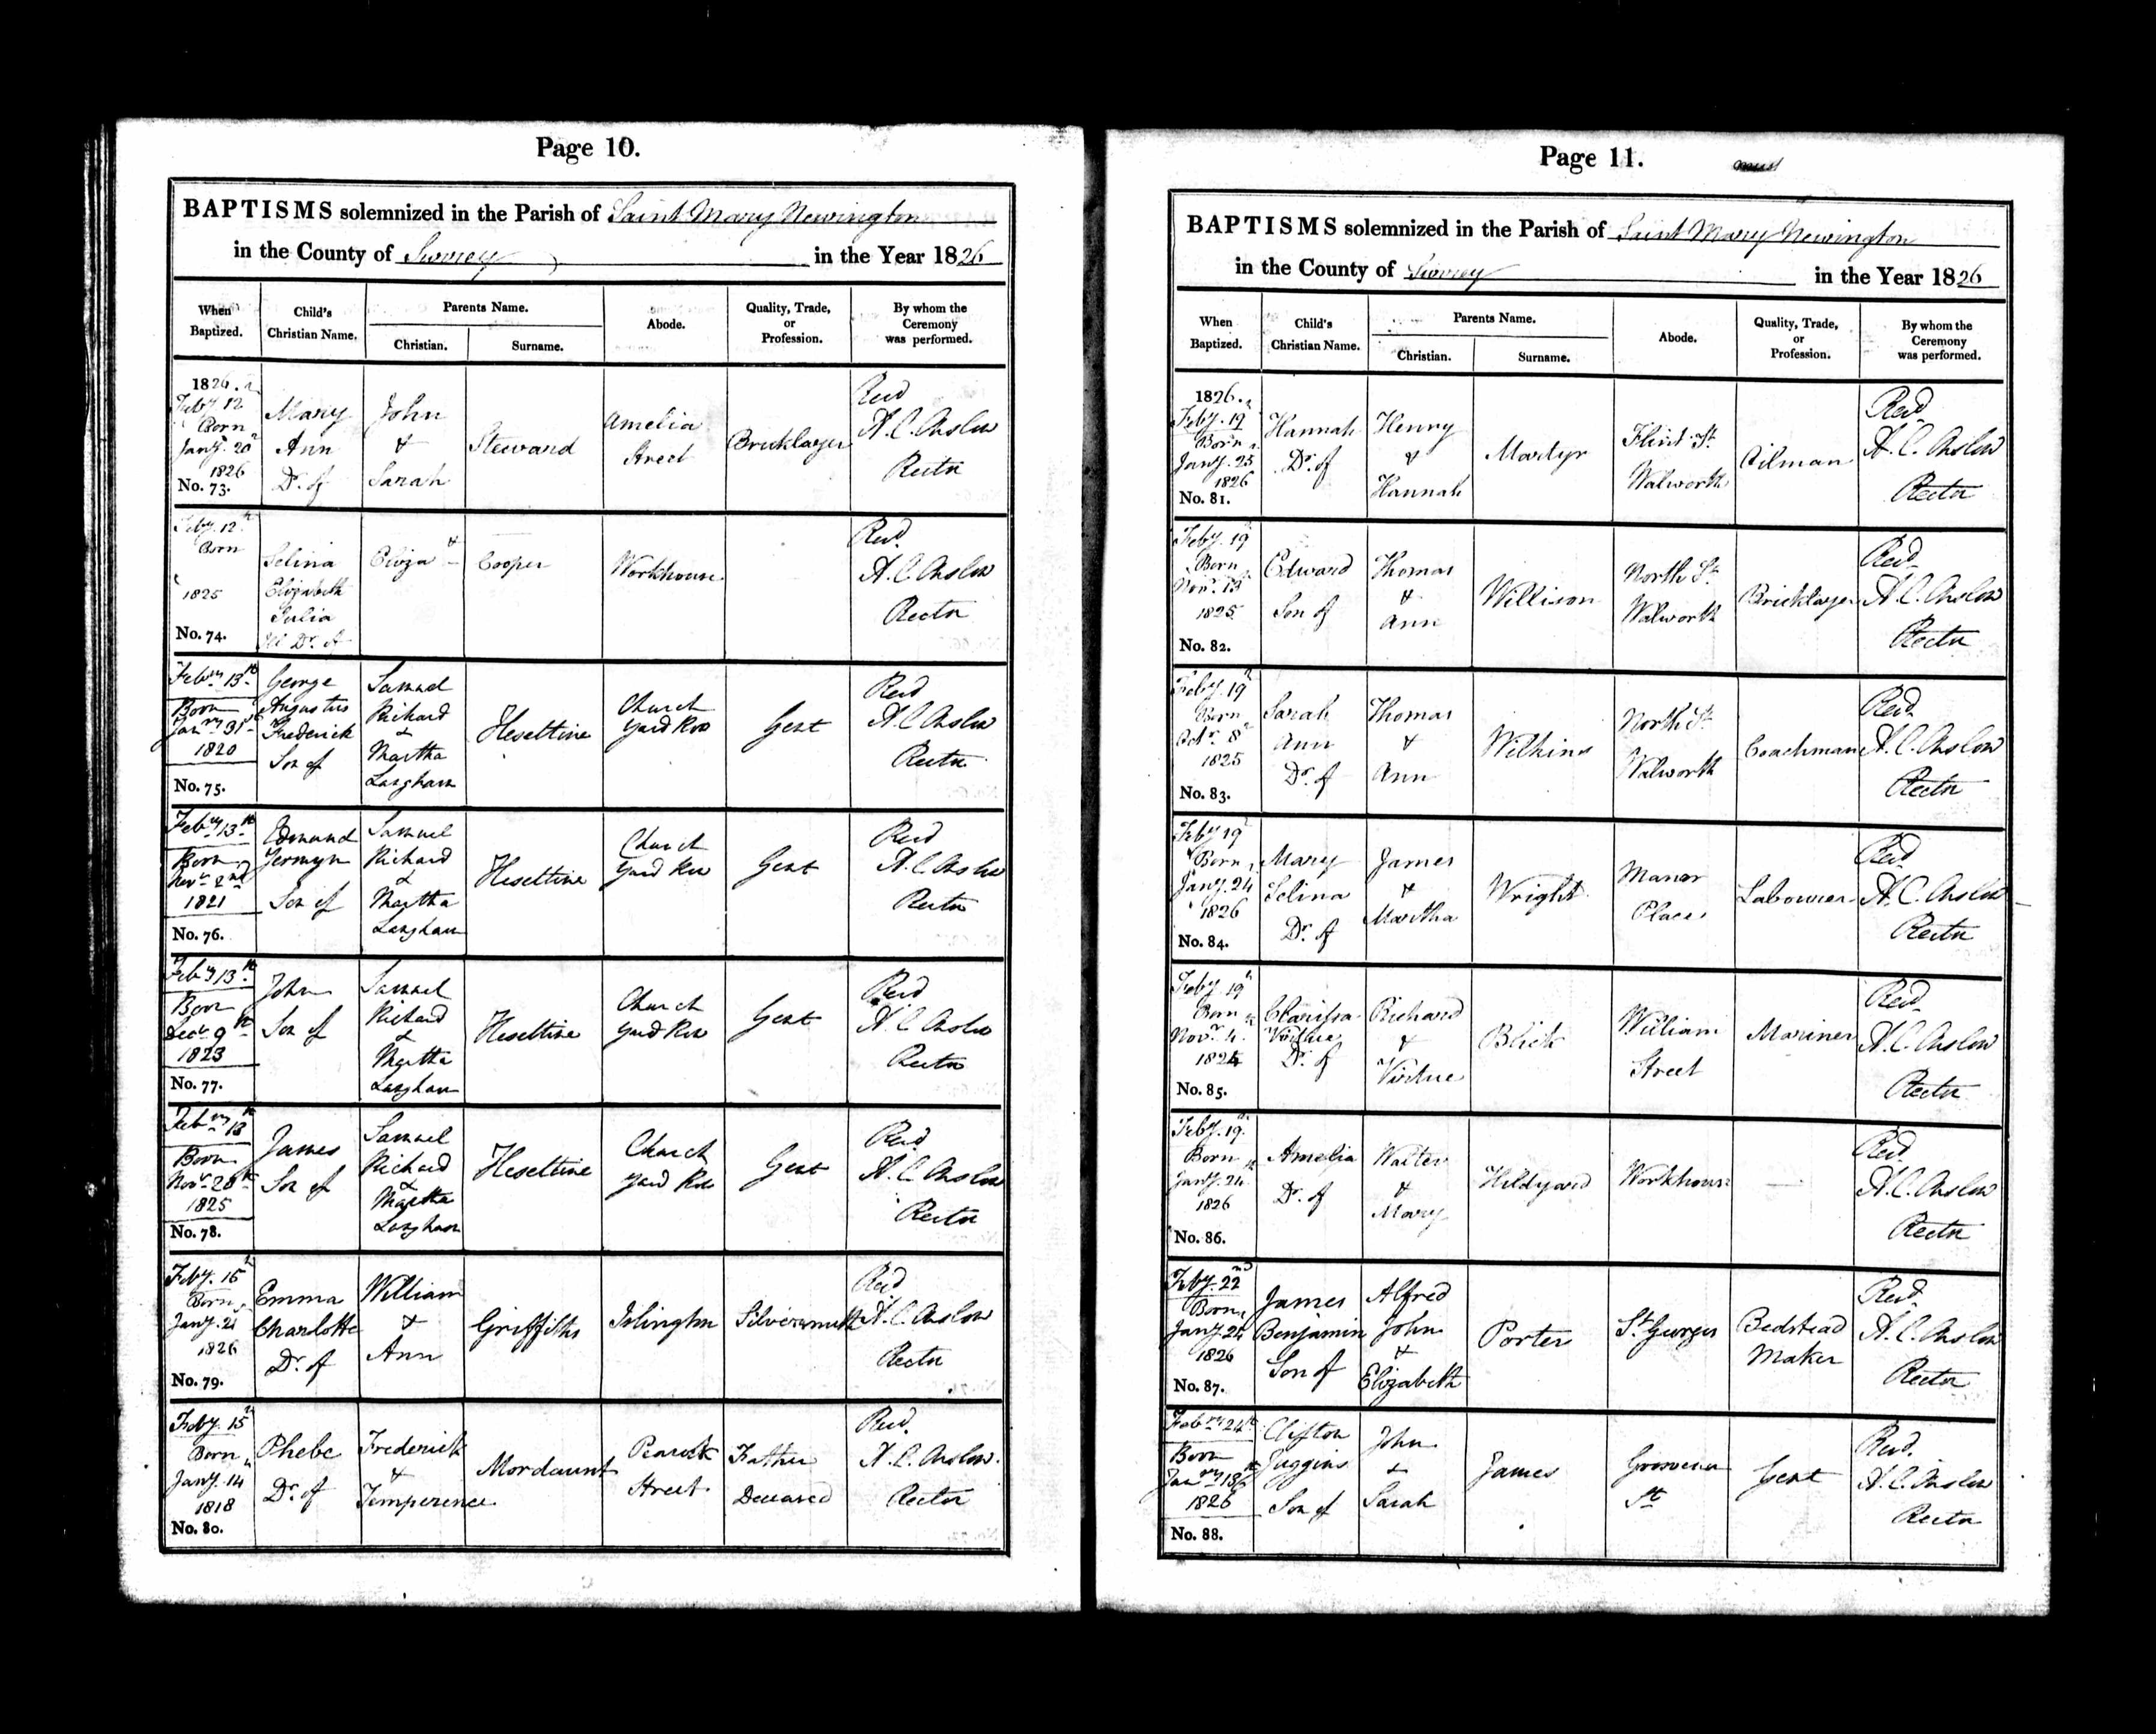 Page 10.
BAPTISMS solemnized in the Parish of Saint Mary Newington
in the County of Surrey in the Year 1826
When Baptized. Child's Christian Name. Parents Name. Christian. Surname. Abode. Quality, Trade, or Profession. By whom the Ceremony was performed.
1826.
Feby. 12 Born Jany. 20 1826 No. 73.
Mary Ann Dr. of
John & Sarah
Steward
Amelia Street
Bricklayer
Revd. A. C. Onslow Rector
Feby. 12 Born 1825 No. 74.
Selina Elizabeth Julia Dr. of
Eliza
Cooper
Workhouse
Revd. A. C. Onslow Rector
Febry 13th Born Janry 31st 1820 No. 75.
George Augustus Frederick Son of
Samuel Richard & Martha Langham
Heseltine
Church Yard Row
Gent
Revd A. C. Onslow Rector
Febry 13th Born Novr 2nd 1821 No. 76.
Edmund Jermyn Son of
Samuel Richard & Martha Langham
Heseltine
Church Yard Row
Gent
Revd A. C. Onslow Rector
Febry 13th Born Decr 9th 1823 No. 77.
John Son of
Samuel Richard & Martha Langham
Heseltine
Church Yard Row
Gent
Revd A. C. Onslow Rector
Febry 13th Born Novr 20th 1825 No. 78.
James Son of
Samuel Richard & Martha Langham
Heseltine
Church Yard Row
Gent
Revd A. C. Onslow Rector
Feby. 15 Born Jany. 21 1826 No. 79.
Emma Charlotte Dr. of
William & Ann
Griffiths
Islington
Silversmith
Revd A. C. Onslow Rector
Feby. 15 Born Jany. 14 1818 No. 80.
Phebe Dr. of
Frederick & Temperence
Mordaunt
Peacock Street
Father Deceased
Revd. A. C. Onslow. Rector
Page 11.
BAPTISMS solemnized in the Parish of Saint Mary Newington
in the County of Surrey in the Year 1826
When Baptized. Child's Christian Name. Parents Name. Christian. Surname. Abode. Quality, Trade, or Profession. By whom the Ceremony was performed.
1826.
Feby. 19 Born Jany. 25 1826 No. 81.
Hannah Dr. of
Henry & Hannah
Martyr
Flint St. Walworth
Oilman
Revd. A. C. Onslow Rector
Feby. 19 Born Novr. 13 1825 No. 82.
Edward Son of
Thomas & Ann
Willison
North St. Walworth
Bricklayer
Revd. A. C. Onslow Rector
Feby. 19 Born Octr. 8 1825 No. 83.
Sarah Ann Dr. of
Thomas & Ann
Wilkins
North St. Walworth
Coachman
Revd. A. C. Onslow Rector
Feby. 19 Born Jany. 24 1826 No. 84.
Mary Selina Dr. of
James & Martha
Wright
Manor Place
Labourer
Revd. A. C. Onslow Rector
Feby. 19 Born Novr. 4 1824 No. 85.
Clarissa Virtue Dr. of
Richard & Virtue
Blick
William Street
Mariner
Revd. A. C. Onslow Rector
Feby. 19. Born Jany. 24 1826 No. 86.
Amelia Dr. of
Walter & Mary
Hildyard
Workhouse
Revd. A. C. Onslow Rector
Feby. 22nd Born Jany. 24 1826 No. 87.
James Benjamin Son of
Alfred John & Elizabeth
Porter
St. Georges
Bedstead Maker
Revd. A. C. Onslow Rector
Febry 24th Born Janry 18th 1826 No. 88.
Clifton Juggins Son of
John & Sarah
James
Grosvenor St
Gent
Revd. A. C. Onslow Rector